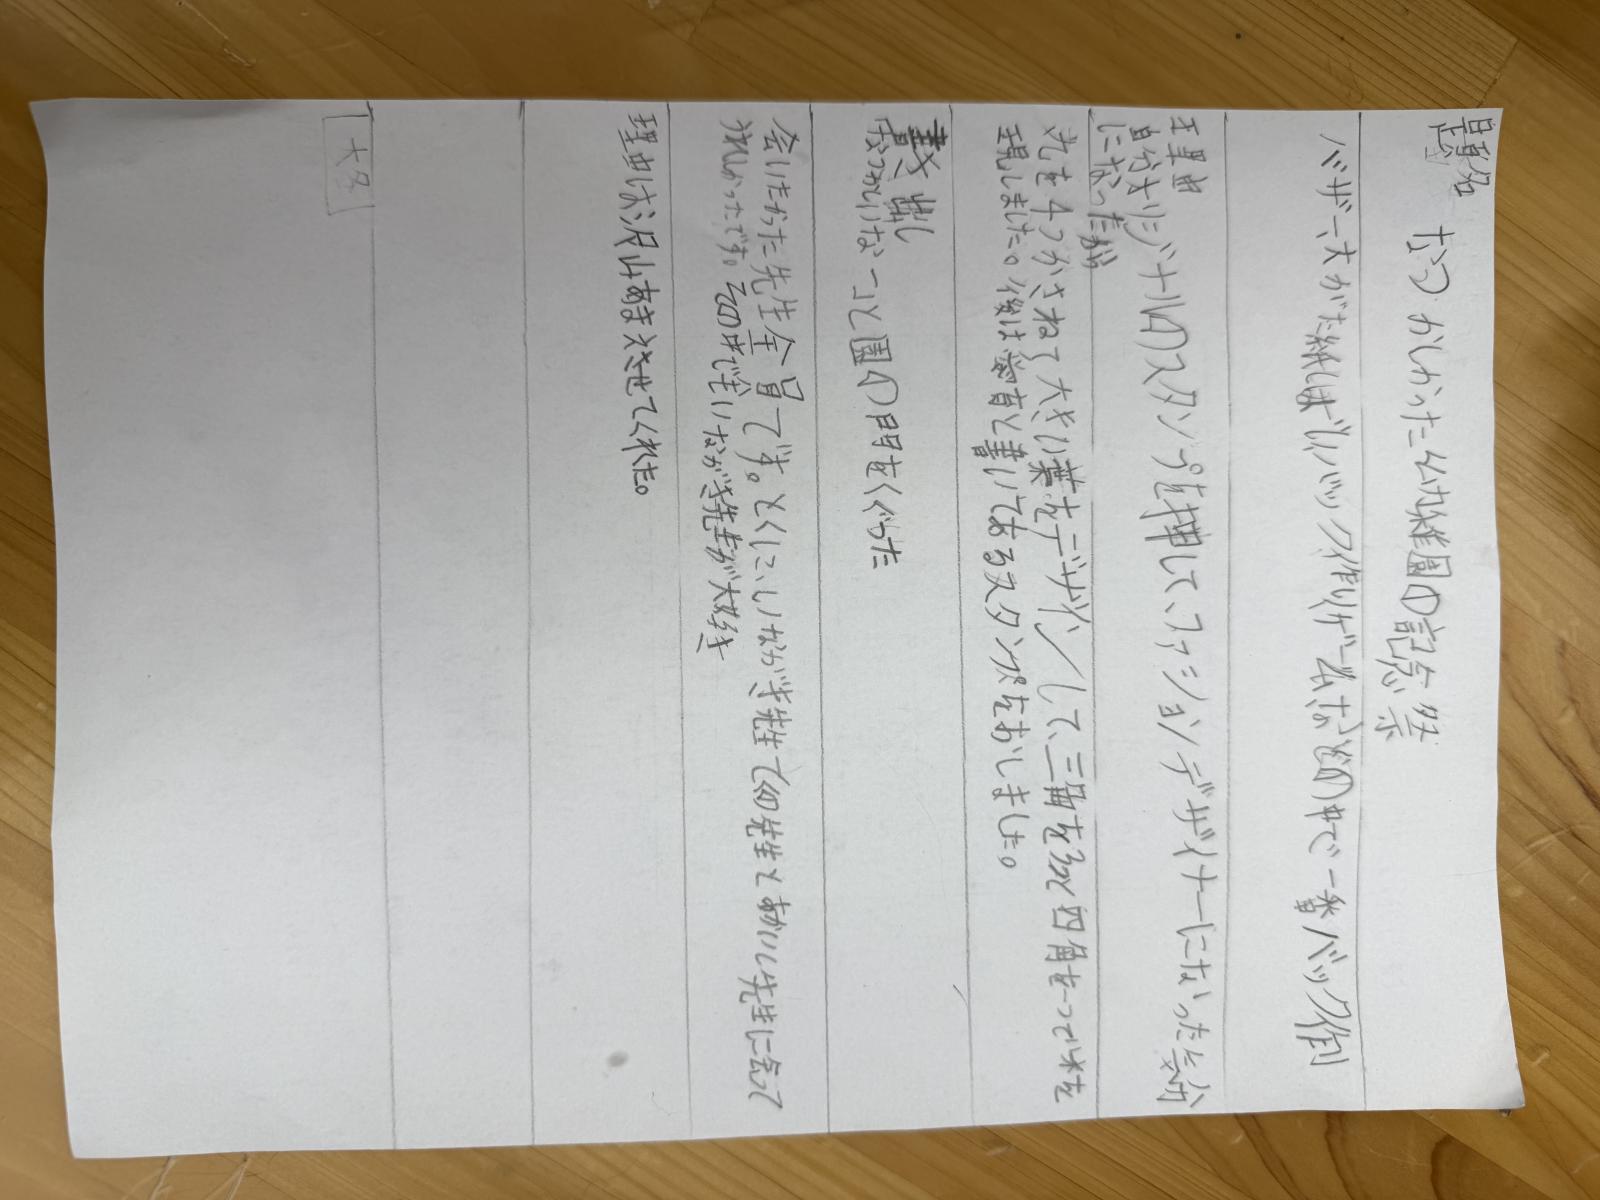 題名
なつかしかった幼稚園の記念祭
バザー、大がた紙しばい、バック作りゲームなどの中で一番バック作り
理由
自分オリジナルのスタンプを押して、ファションデザイナーになった気分
になったから
丸を4つかさねて大きい葉をデザインして、三角を 四角を一つで木を
表現しました。後は愛育と書いてあるスタンプをおしました。
裏出し
なつかしいな一コと園の門をくぐった
会いたかった先生全員です。とくに、しながき先生 の先生と あかいし先生に会って
うれしかったです。その中で しながき先生が大好き
理由は沢山あまえさせてくれた。
大名